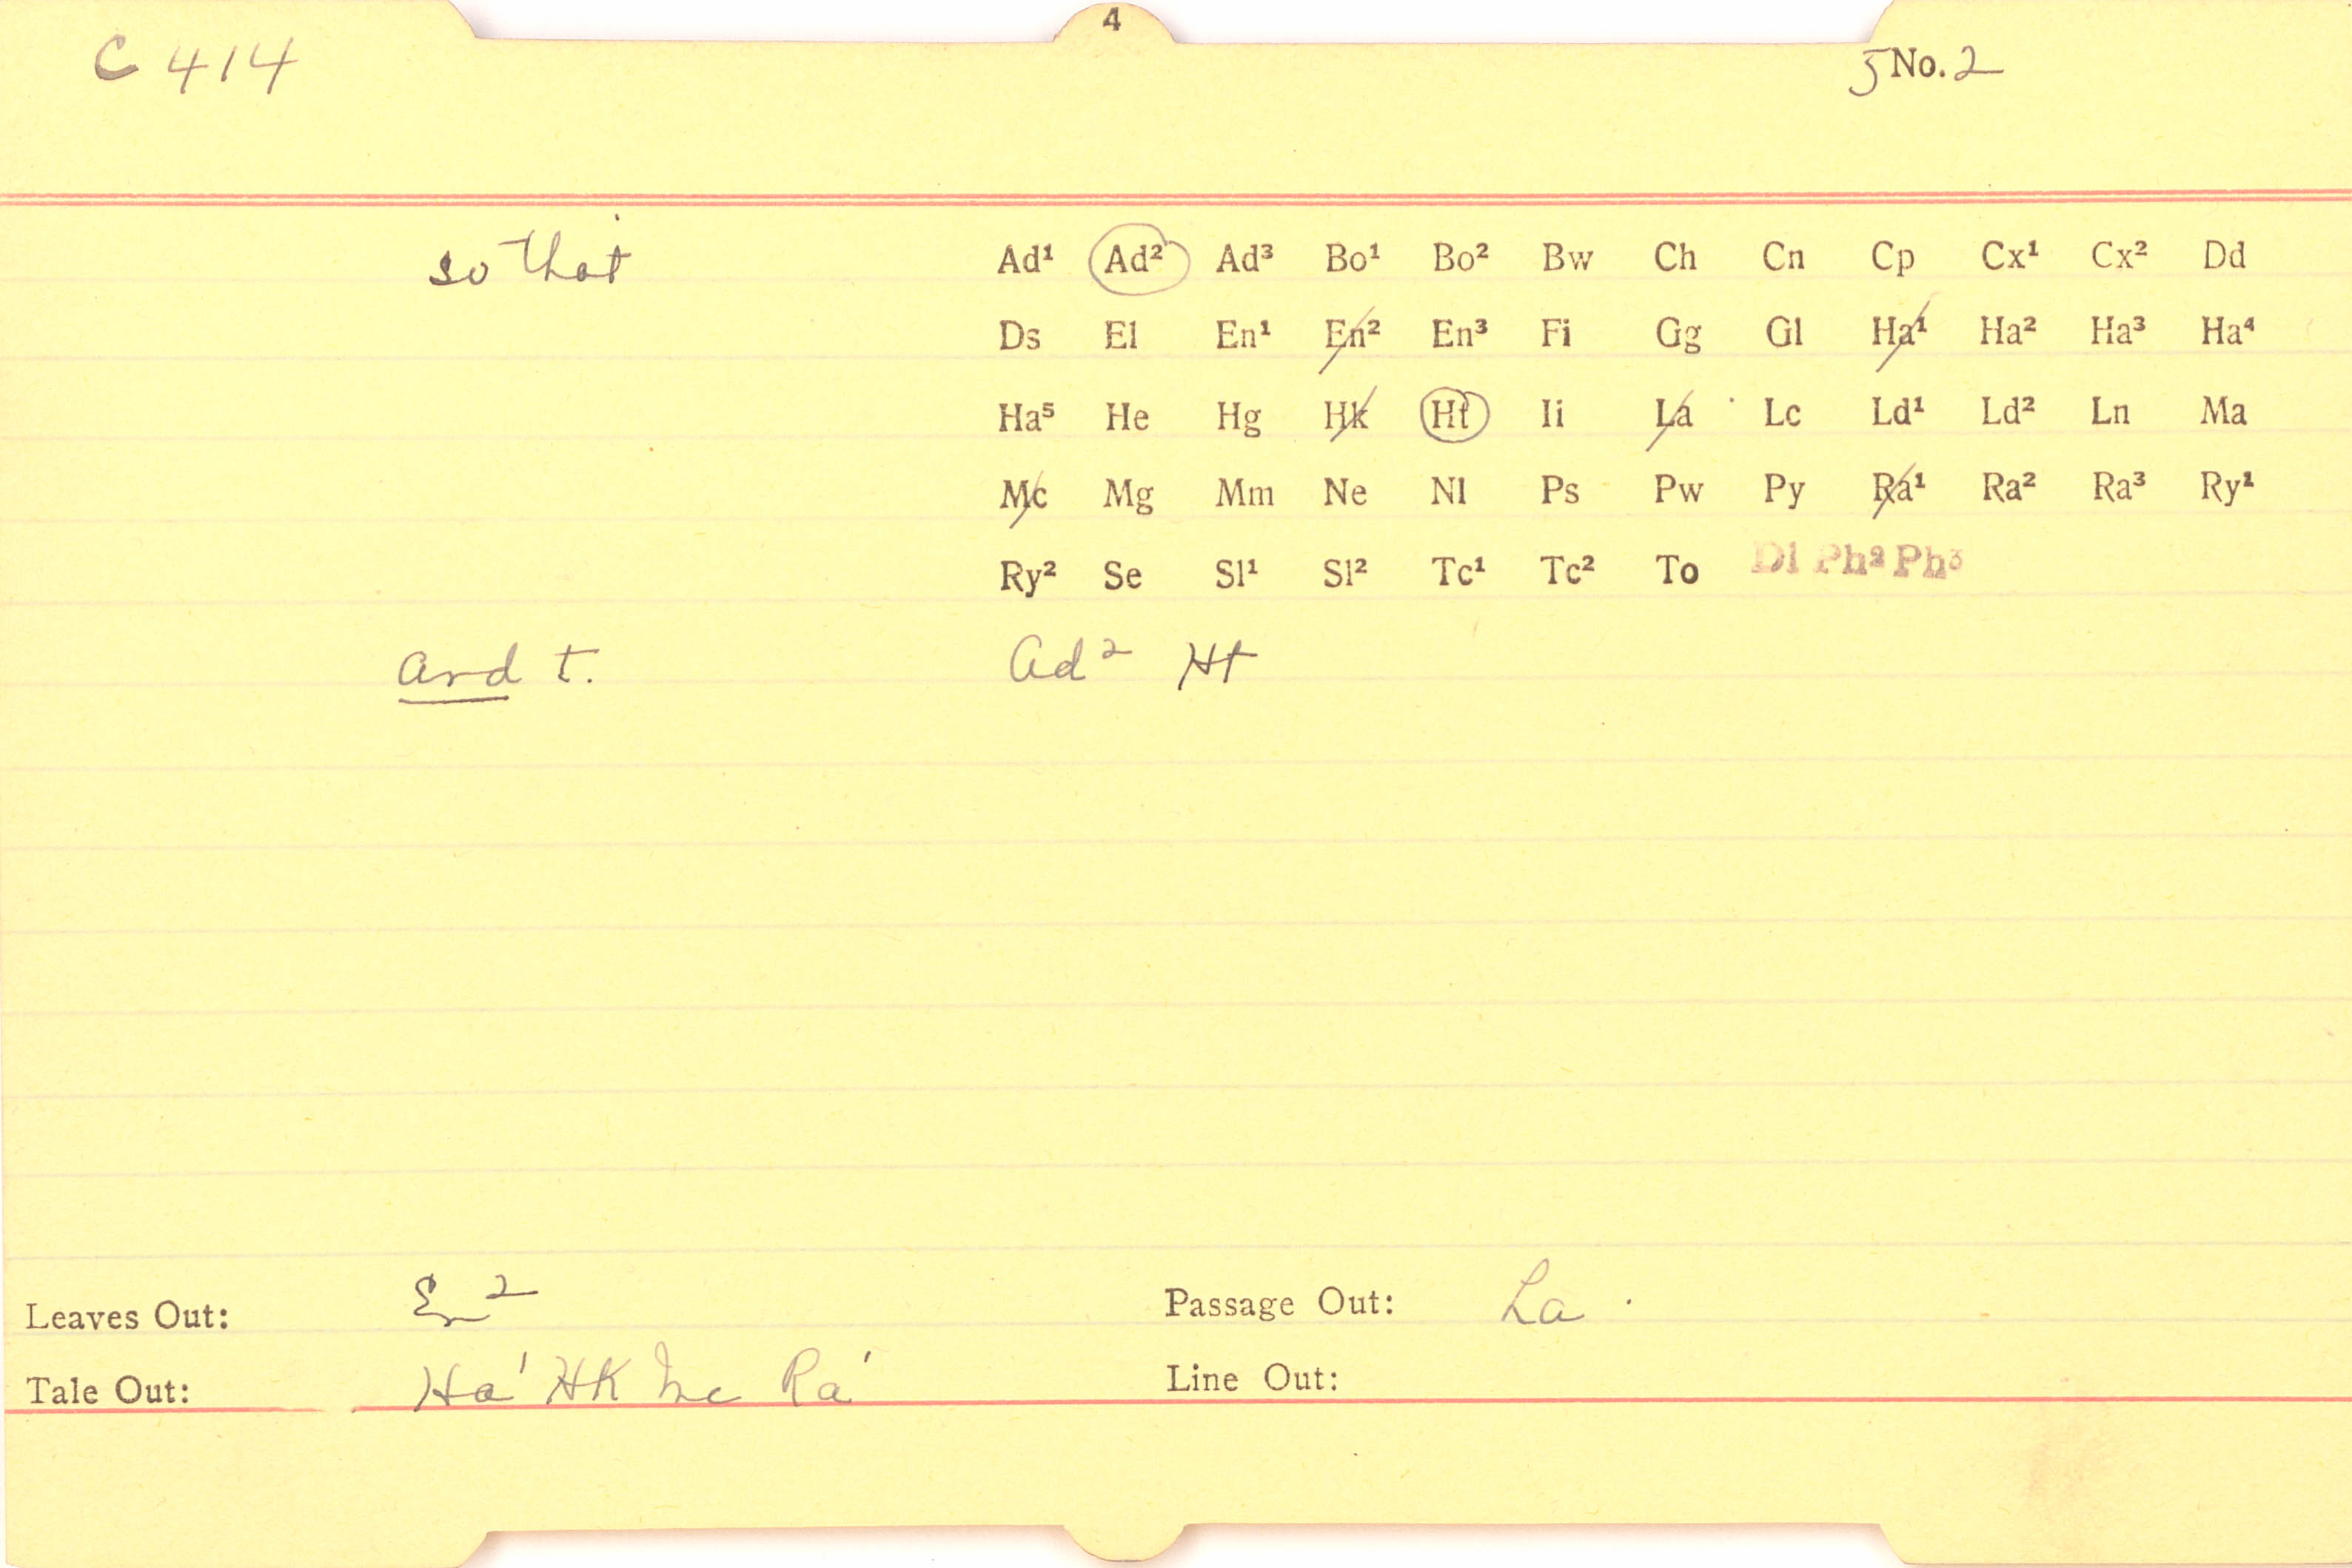 4
C 414
5 No. 2
so that
Ad¹ Ad² Ad³ Bo¹ Bo² Bw Ch Cn Cp Cx¹ Cx² Dd
Ds El En¹ En² En³ Fi Gg Gl Ha¹ Ha² Ha³ Ha⁴
Ha⁵ He Hg Hk Ht Ii La Lc Ld¹ Ld² Ln Ma
Mc Mg Mm Ne Nl Ps Pw Py Ra¹ Ra² Ra³ Ry¹
Ry² Se Sl¹ Sl² Tc¹ Tc² To Dl Ph² Ph³
and t. Ad² Ht
Leaves Out: En² Passage Out: La
Tale Out: Ha¹ Hk Mc Ra¹ Line Out: